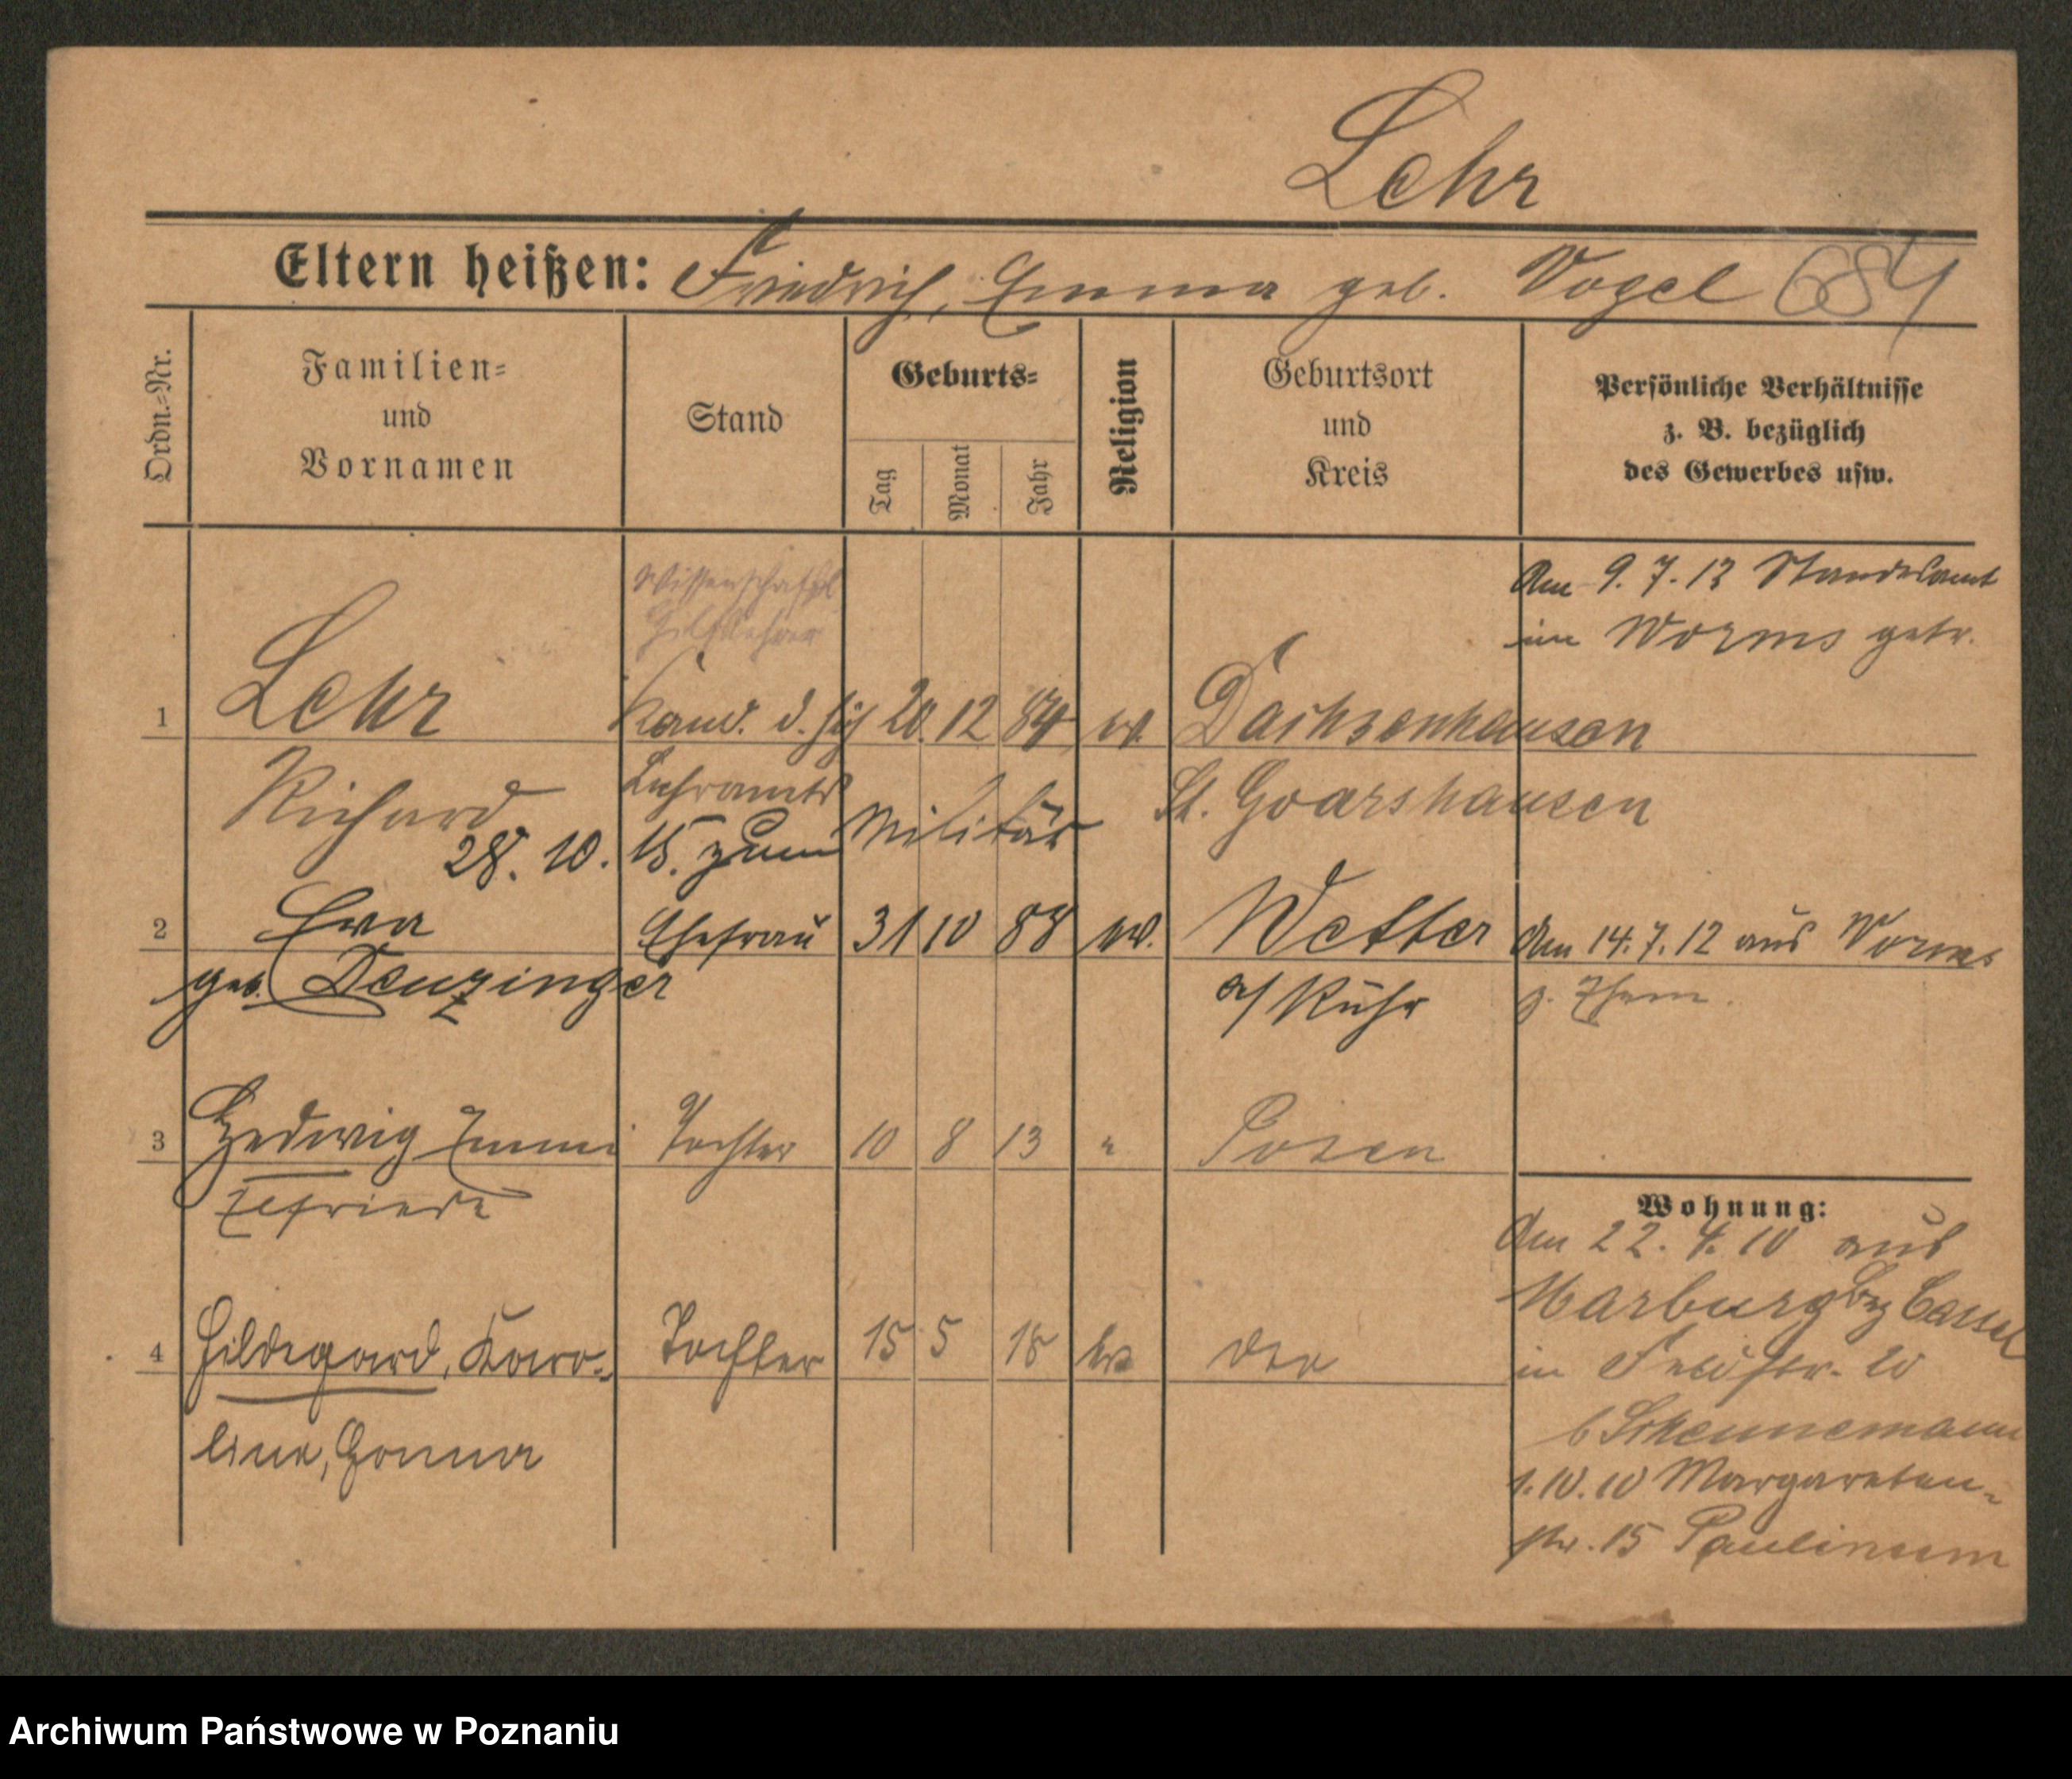 Lehr
Eltern heißen: Friedrich, Emma geb. Vogel 684
Ordn.=Nr.
Familien=
und
Vornamen
Stand
Geburts=
Tag
Monat
Jahr
Religion
Geburtsort
und
Kreis
Persönliche Verhältnisse
z. B. bezüglich
des Gewerbes usw.
Wissenschaftl
Hilfslehrer
Am 9. 7. 12 Standesamt
in Worms getr.
1 Lehr Kand. d. höh 20. 12 84 ev. Dachsenhausen
Richard Lehramts St. Goarshausen
28. 10. 15. zum Militär
2 Eva Ehefrau 31 10 88 ev. Wetter Am 14. 7. 12 aus Worms
geb. Denzinger a/ Ruhr z. Ehem.
3 Hedwig Emmi Tochter 10 8 13 " Posen
Elfriede
Wohnung:
Am 22. 4. 10 aus
Marburg Bz Cassel
4 Hildegard, Karo= Tochter 15 5 18 ev
in str. 10
line, Gonna
b
1. 10. 10 Margareten=
str. 15 Paulinum
Archiwum Państwowe w Poznaniu